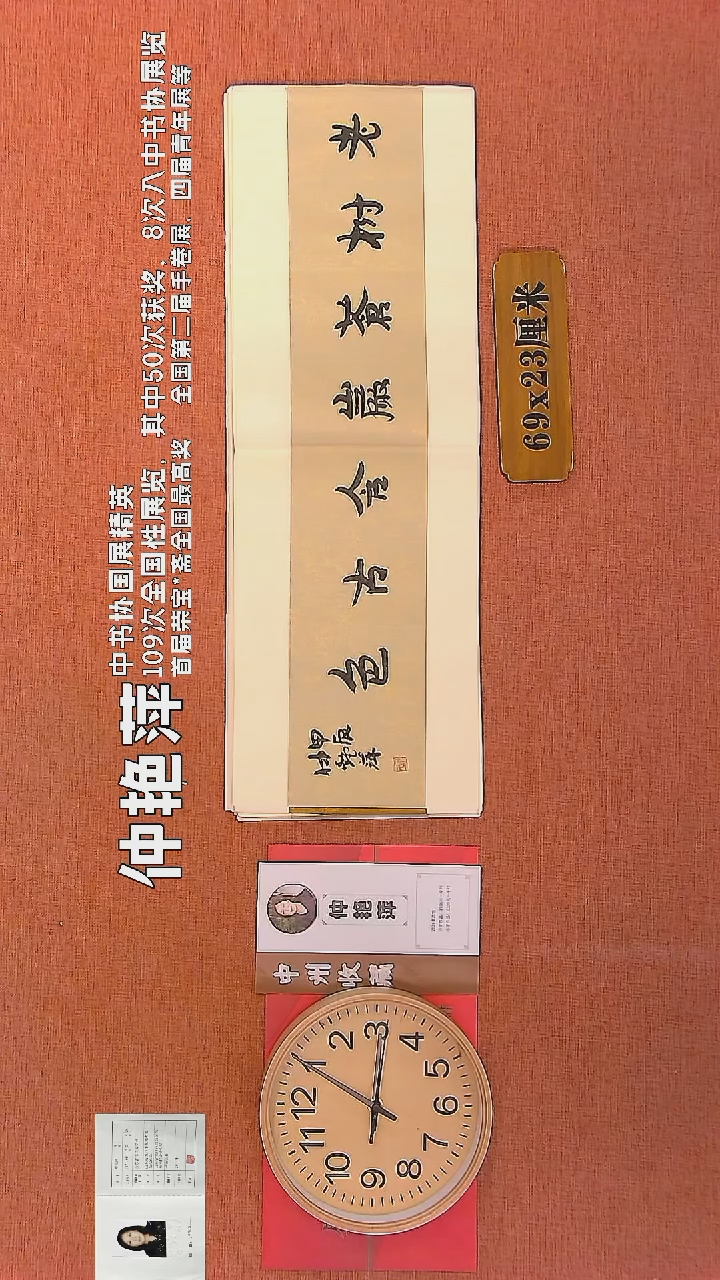 仲艳萍
中书协国展精英
109次全国性展览，其中50次获奖，8次入中书协展览
首届荣宝*斋全国最高奖 全国第二届手卷展、四届青年展等
老树蒼巖含古色
甲辰
仲艳萍
69x23厘米
中州收藏
仲艳萍
12
1
2
3
4
5
6
7
8
9
10
11